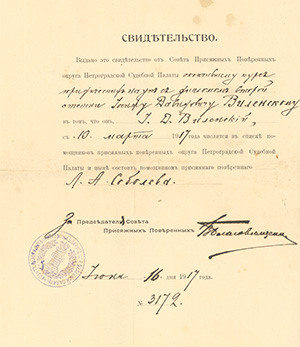 СВИДѢТЕЛЬСТВО.
Выдано это свидѣтельство отъ Совѣта Присяжныхъ Повѣренныхъ
округа Петроградской Судебной Палаты окончившему курсъ
юридическихъ наукъ съ дипломомъ второй
степени Іосифу Давидовичу Виленскому
въ томъ, что онъ, І. Д. Виленскій,
съ 10 марта 1917 года числится въ спискѣ по-
мощниковъ присяжныхъ повѣренныхъ округа Петроградской Судебной
Палаты и нынѣ состоитъ помощникомъ присяжнаго повѣреннаго
Л. А. Соболева.
За Предсѣдателя Совѣта
Присяжныхъ Повѣренныхъ
16 дня 1917 года.
№ 3172.